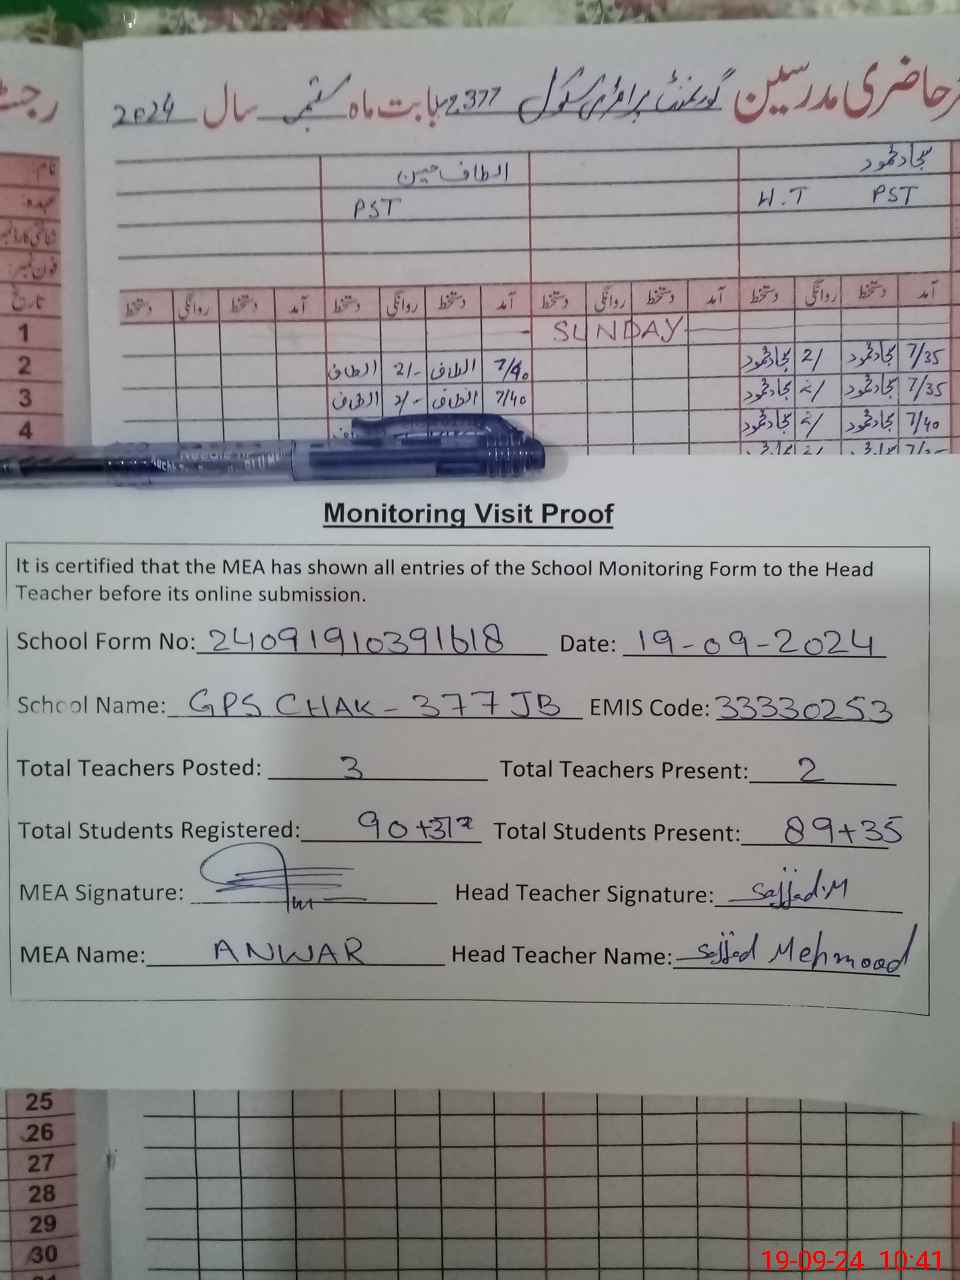 رجسٹر حاضری مدرسین گورنمنٹ پرائمری سکول 377 بابت ماہ ستمبر سال 2024
نام:
عہدہ:
فون نمبر:
تاریخ
سجاد محمود
الطاف حسین
PST H.T
PST
آمد دستخط روانگی دستخط آمد دستخط روانگی دستخط آمد دستخط روانگی دستخط آمد دستخط روانگی دستخط
1 SUNDAY
2 7/35 سجاد محمود 2/ سجاد محمود 7/40 الطاف 2/- الطاف
3 7/35 سجاد محمود 2/ سجاد محمود 7/40 الطاف 2/- الطاف
4 7/40 سجاد محمود 2/ سجاد محمود
Monitoring Visit Proof
It is certified that the MEA has shown all entries of the School Monitoring Form to the Head
Teacher before its online submission.
School Form No: 24091910391618 Date: 19-09-2024
School Name: GPS CHAK-377 JB EMIS Code: 33330253
Total Teachers Posted: 3 Total Teachers Present: 2
Total Students Registered: 90+37 Total Students Present: 89+35
MEA Signature: Head Teacher Signature: Sajjad.M
MEA Name: ANWAR Head Teacher Name: Sajjad Mehmood
25
26
27
28
29
30
19-09-24 10:41